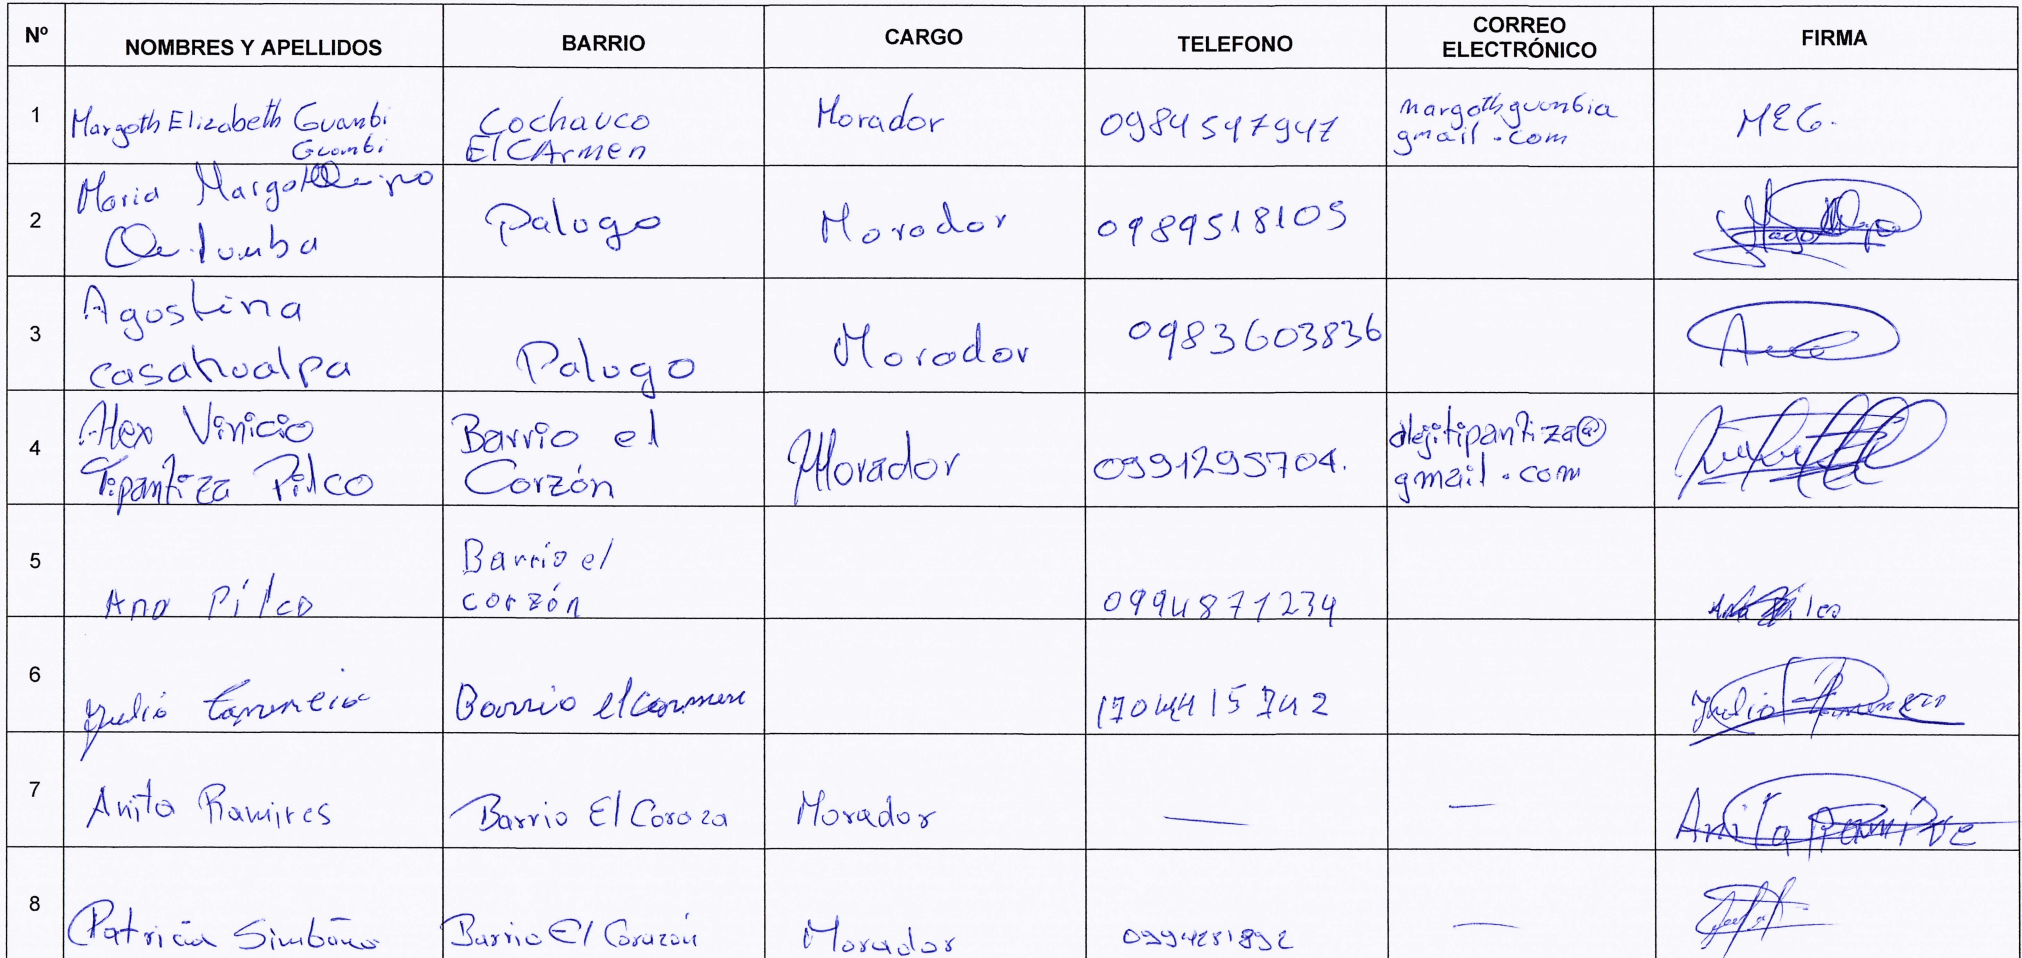 Nº NOMBRES Y APELLIDOS BARRIO CARGO TELEFONO CORREO ELECTRÓNICO FIRMA
1 Margoth Elizabeth Guambi Guambi Cochauco El CArmen Morador 0984547947 margothguambia gmail.com MEG.
2 Maria Margoth Morador Palugo 0989518105
3 Agostina casahualpa Palugo Morador 0983603836
4 Alex Vinicio Tipantiza Pilco Barrio el Corzón Morador 0991295704. alejitipantiza@ gmail.com
5 Ana Pilco Barrio el corzón 0994871234 Ana Pilco
6 Julio Barrio el carmen 1704415742 Julio
7 Anita Ramires Barrio El Coroza Morador — — Anita Ramire
8 Patricia Simbaña Barrio El Corazón Morador 0994281892 —